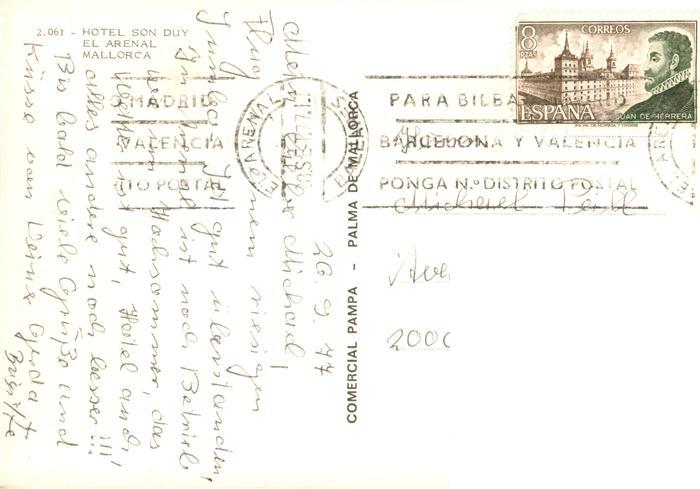 2.061 - HOTEL SON DUY
EL ARENAL
MALLORCA
26. 9. 77
Mein lieber Michael!
Flug einem riesigen
Jumbo Jet gut überstanden,
Im Hotel ist noch Betrieb
wie im Hochsommer, das
Wetter ist gut, Hotel und
alles andere noch besser!!!
Bis bald viele Grüße und
Küsse von Deine
Brigitte
COMERCIAL PAMPA - PALMA DE MALLORCA
EL ARENAL
MADRID
VALENCIA
DISTRITO POSTAL
PARA BILBAO
BARCELONA Y VALENCIA
PONGA N.º DISTRITO POSTAL
8
PTAS
CORREOS
ESPAÑA
JUAN DE HERRERA
Michael
2000